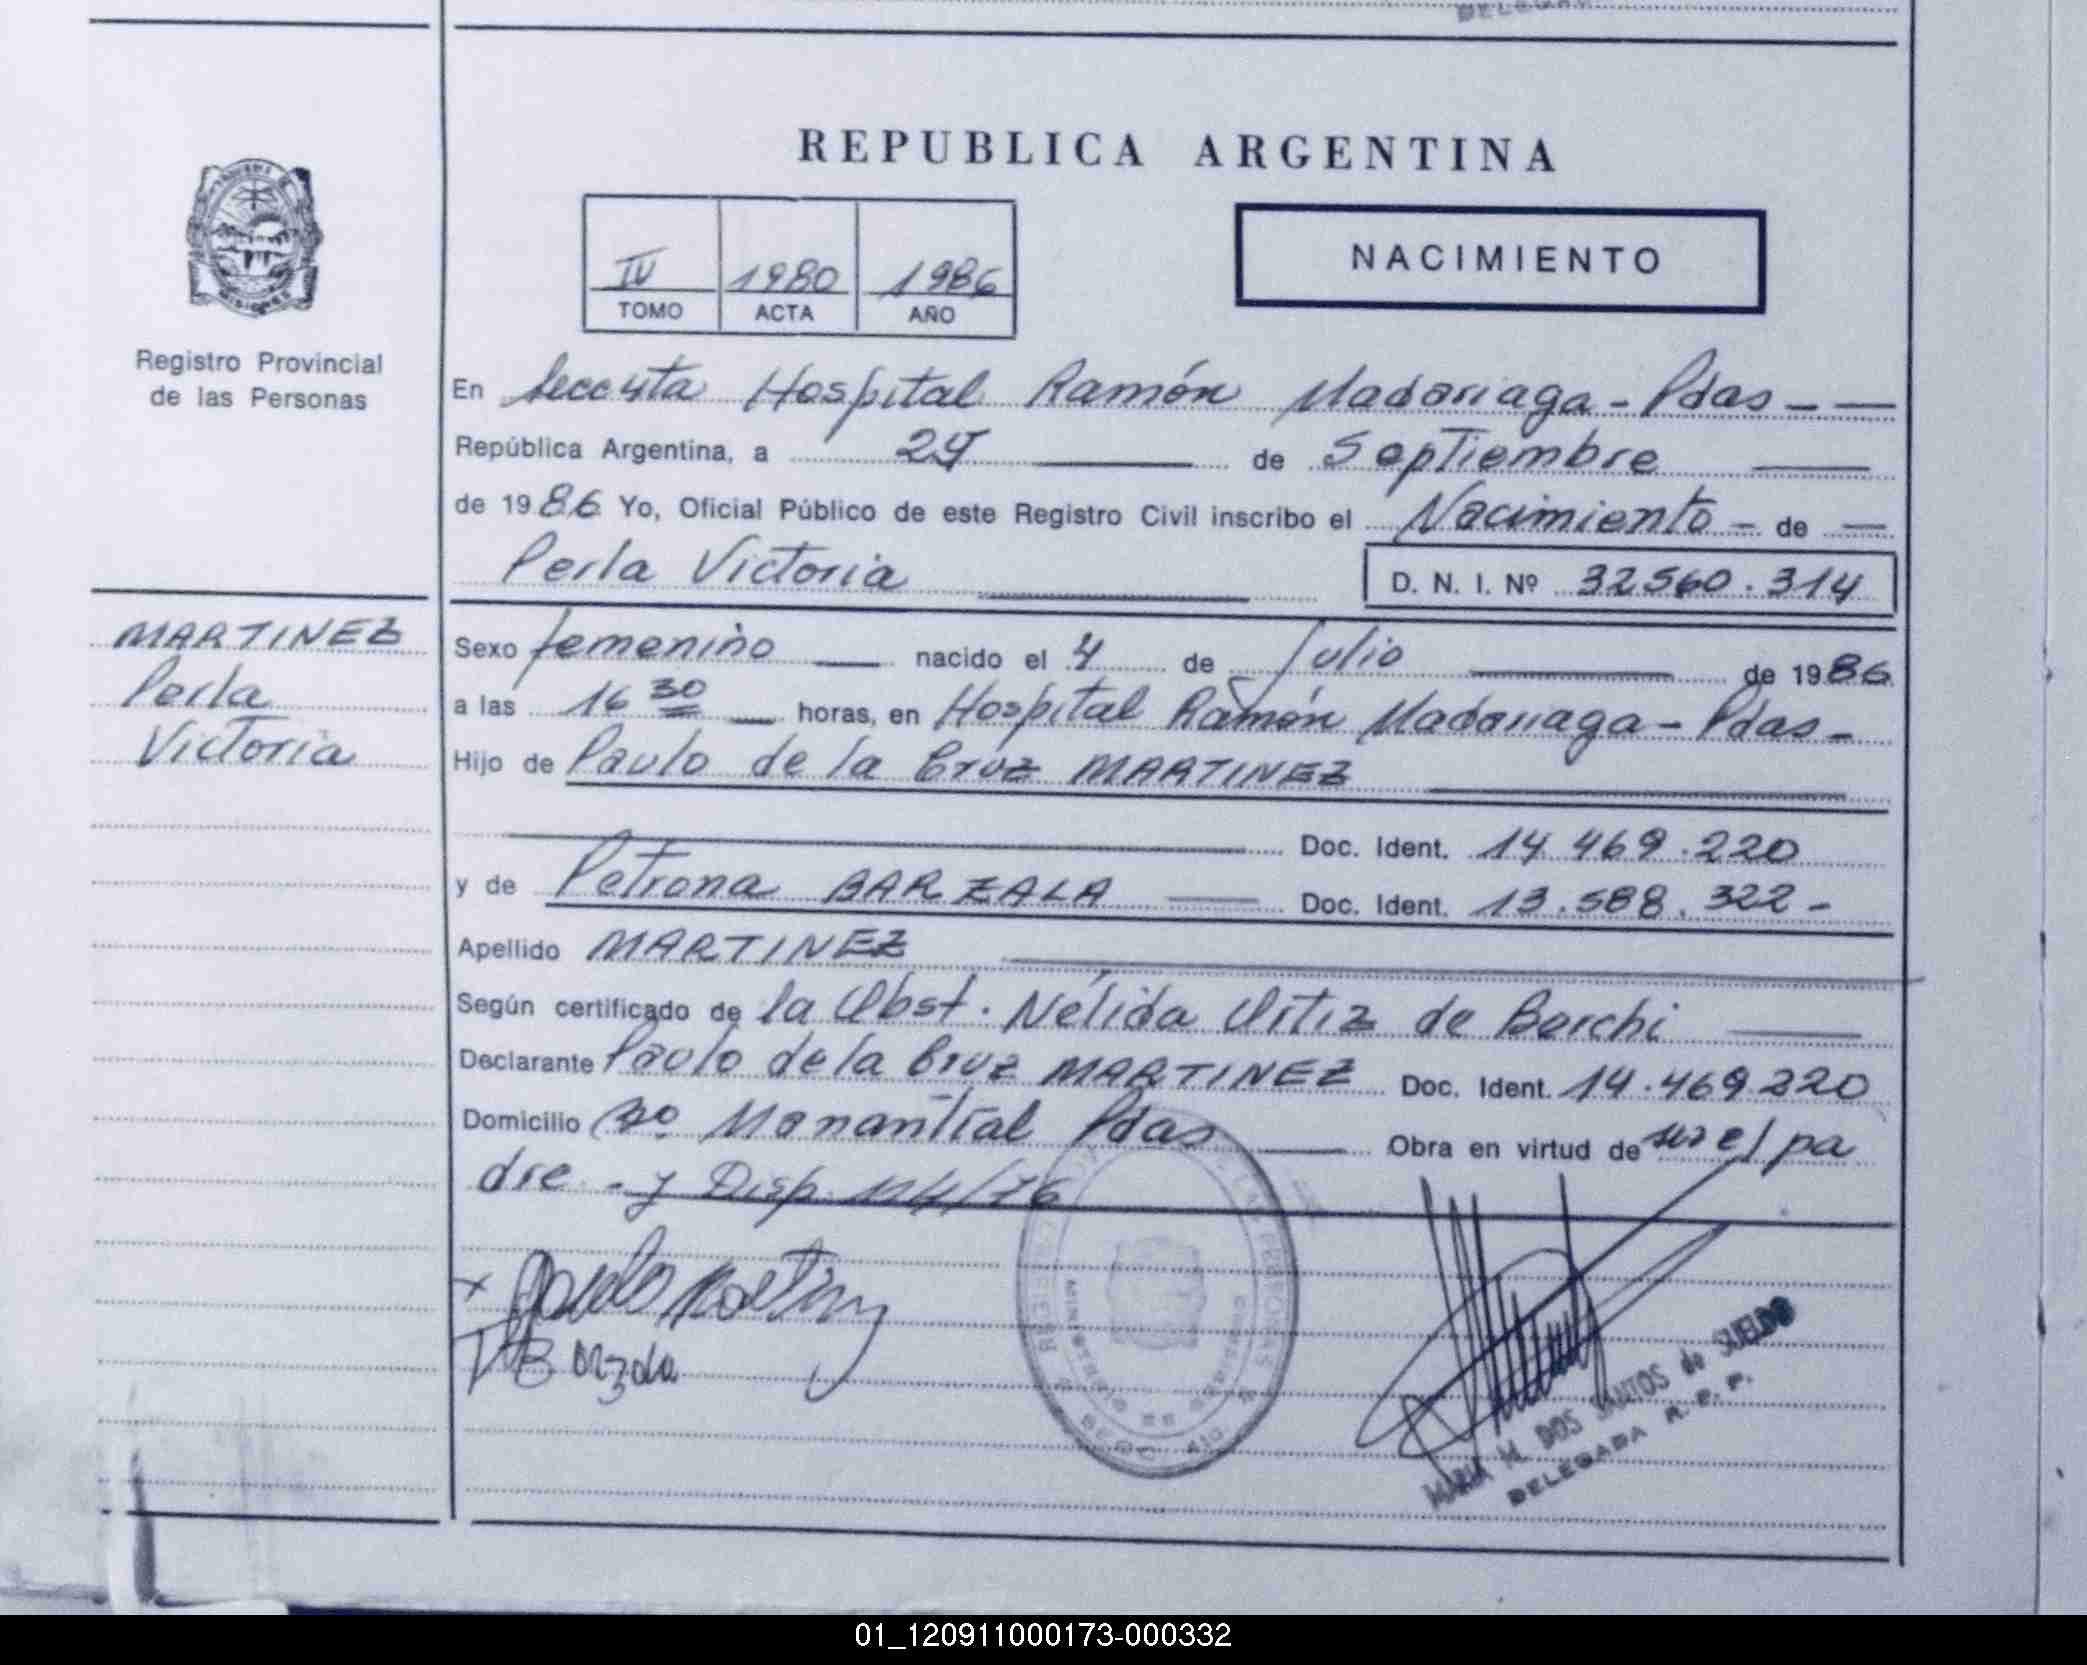 DELEGAD
REPUBLICA ARGENTINA
IV 1980 1986
TOMO ACTA AÑO
NACIMIENTO
Registro Provincial
de las Personas
En Hospital Ramón Madariaga - Pdas -
República Argentina, a 29 de Septiembre
de 1986 Yo, Oficial Público de este Registro Civil inscribo el Nacimiento - de
Perla Victoria D. N. I. Nº 32560.314
MARTINEZ
Perla
Victoria
Sexo femenino nacido el 4 de Julio de 1986
a las 16 30 horas, en Hospital Ramón Madariaga - Pdas -
Hijo de Paulo de la Cruz MARTINEZ
Doc. Ident. 14.469.220
y de Petrona BARZALA Doc. Ident. 13.588.322 -
Apellido MARTINEZ
Según certificado de la Obst. Nélida Ortiz de Barchi
Declarante Paulo de la Cruz MARTINEZ Doc. Ident. 14.469220
Domicilio Bº Manantial Pdas Obra en virtud de ser el pa
dre - y Disp. 114/76
MARIA M. DOS SANTOS de SUELDO
DELEGADA R. P. P.
01_120911000173-000332